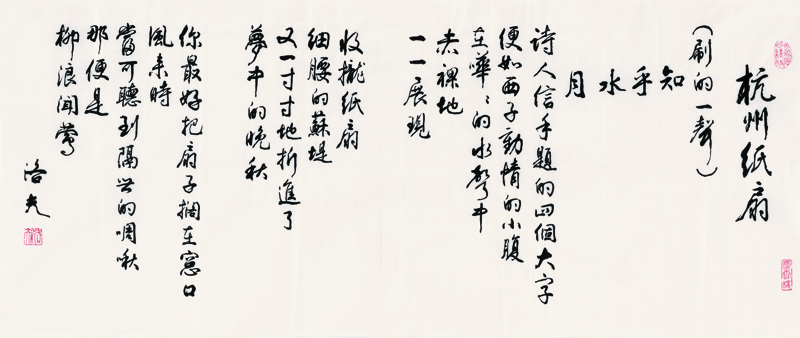 杭州纸扇
(刷的一聲)
知乎水月
诗人信手題的四個大字
便如西子動情的小腹
在嘩々的水聲中
赤裸地
一一展現
收攏纸扇
细腰的蘇堤
又一寸寸地折進了
夢中的晚秋
你最好把扇子擱在窗口
風来時
當可聽到隔岸的啁啾
那便是
柳浪闻莺
洛夫